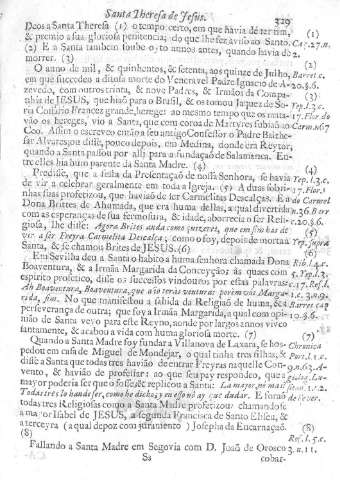 Santa Theresa de Jesus. 329
Deos a Santa Theresa (1) o tempo certo, em que havia de ter fim, (1)
& premio a sua gloriosa penitencia; do que lhe fez aviso ao Santo. Cap. 27. n.
(2) E a Santa tambem soube oyto annos antes, quando havia de 2.
morrer. (3) (2)
O anno de mil, & quinhentos, & setenta, aos quinze de Julho, Barret. c.
em que succedeu a ditosa morte do Veneravel Padre Ignacio de A- 20. §. 6.
zevedo, com outros trinta, & nove Padres, & Irmãos da Compa- (3)
nhia de JESUS, que hião para o Brasil, & os tomou Jaques de So- Yep. l. 3. c.
ria Cossario Francez grande herege: ao mesmo tempo que os mata- 17. Flor do
vão os hereges, vio a Santa, que com coroa de Martyres subião ao Carm. n. 67
Ceo. Assim o escreveo então a seu antigo Confessor o Padre Balthe-
sar Alvares; ou disse, pouco depois, em Medina, donde era Reytor,
quando a Santa passou por alli para a fundação de Salamanca. En-
tre elles hia hum parente da Santa Madre. (4) (4)
Predisse, que a festa da Presentação de nossa Senhora, se havia Yep. l. 3. c.
de vir a celebrar geralmente em toda a Igreja. (5) A duas sobri- 17. Flor.
nhas suas profetizou, que havião de ser Carmelitas Descalças. Eu do Carmel
Dona Brites de Ahumada, que era huma dellas, a qual divertida n. 36. Barr
com as esperanças de sua fermosura, & idade, aborrecia o ser Reli- c. 20. §. 6.
giosa, lhe disse: Agora Brites anda como quizeres, que em fim has de (5)
vir a ser Freyra Carmelita Descalça; como o foy, depois de morta a Yep. supra
Santa, & se chamou Brites de JESUS. (6) (6)
Em Sevilha deu a Santa o habito a huma senhora chamada Dona Rib. l. 4. c.
Boaventura, & a Irmãa Margarida da Conceyção; ás quaes com 5. Yep. l. 3.
espirito profetico, disse os successos vindouros por estas palavras: c. 17. Ref. l.
Ah Boaventura, Boaventura, que a ti teràs venturas; porém vós Marga- 1. c. 30. n. 2.
rida, sim. No que manifestou a sahida da Religião de huma, & a Barret. cap.
perseverança de outra; que foy a Irmãa Margarida, a qual com opi- 20. §. 6.
nião de Santa veyo para este Reyno, aonde por largos annos viveo
santamente, & acabou a vida com huma gloriosa morte. (7) (7)
Quando a Santa Madre foy fundar a Villanova de Laxara, se hos- Chronica
pedou em casa de Miguel de Mondejar, o qual tinha tres filhas, & Port. l. 1. c.
disse a Santa que todas tres havião de entrar Freyras naquelle Con-
vento, & havião de professar: ao que seu pay respondeo, que a
mayor poderia ser que o fosse; & replicou a Santa: La mayor, no mas?
Todas tres lo han de ser, como he dicho, y en esso no ay que dudar. E forão
todas tres Religiosas como a Santa Madre profetizou; chamando-se
a mayor Isabel de JESUS, a segunda Francisca de Santo Eliseu, &
a terceyra (a qual depoz com juramento) Josepha da Encarnação. (8)
(8) Ref. l. 5. c.
Fallando a Santa Madre em Segovia com D. João de Orosco 3. n. 11.
Sa cobar-